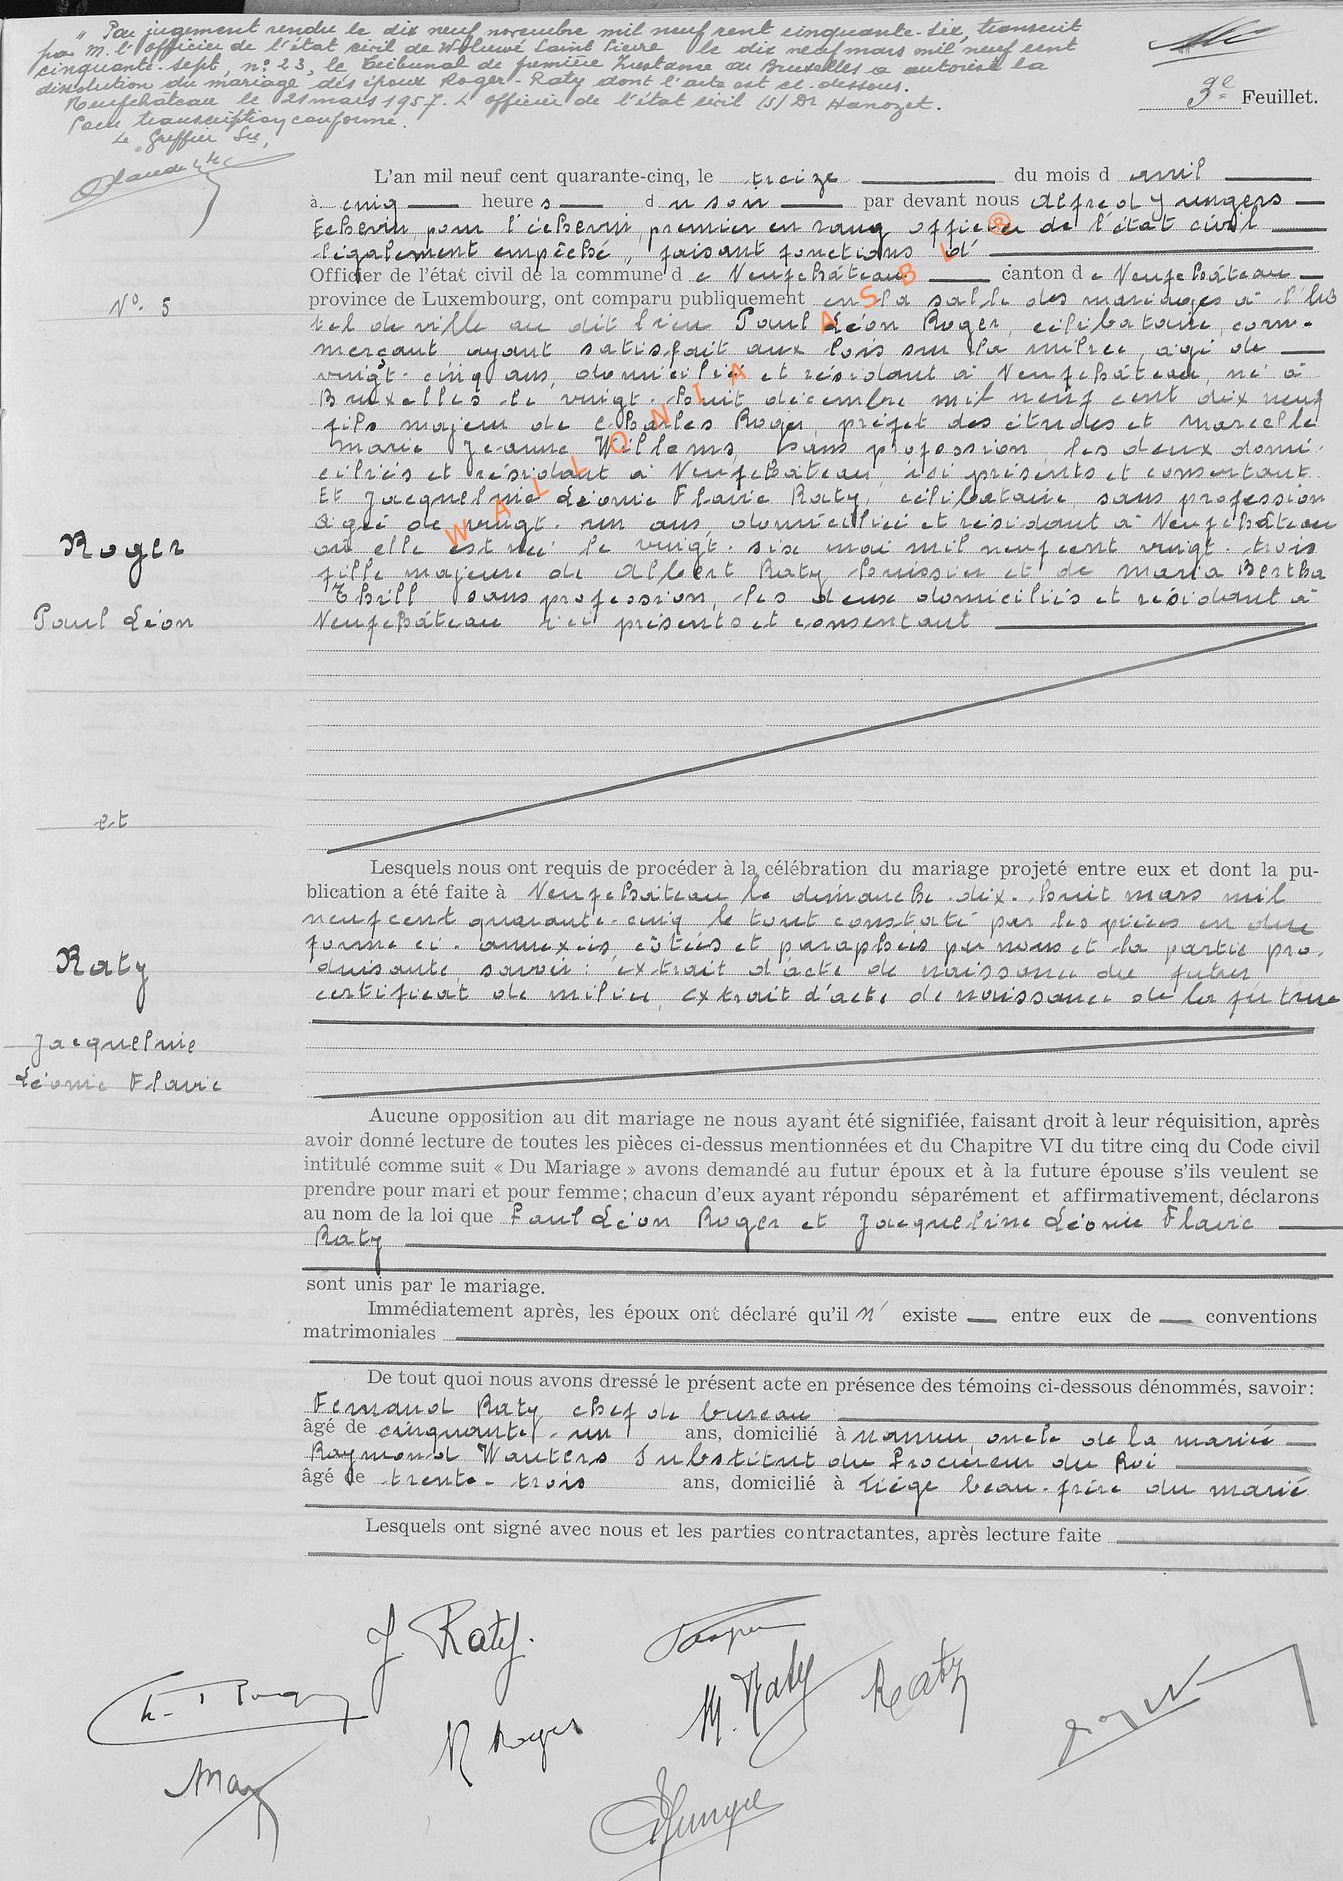 " Par jugement rendu le dix neuf novembre mil neuf cent cinquante-six, transcrit
par M. l'officier de l'état civil de Woluwé Saint Pierre le dix neuf mars mil neuf cent
cinquante-sept, n° 23, le Tribunal de première Instance de Bruxelles a autorisé la
dissolution du mariage des époux Roger-Raty dont l'acte est ci-dessous.
Neufchâteau le 21 mars 1957. L'officier de l'état civil (s) Dr Hanozet.
Pour transcription conforme.
Le Greffier
3e Feuillet.
L'an mil neuf cent quarante-cinq, le treize du mois d avril
à cinq heures d u soir par devant nous Alfred Jungers
Echevin, pour l'échevin, premier en rang officier de l'état civil
légalement empêché, faisant fonctions d'
Officier de l'état civil de la commune d e Neufchâteau canton d e Neufchâteau
N° 5
province de Luxembourg, ont comparu publiquement en la salle des mariages à l'hô
tel de ville au dit lieu Paul Léon Roger, célibataire, com-
merçant, ayant satisfait aux lois sur la milice, âgé de
vingt-cinq ans, domicilié et résidant à Neufchâteau, né à
Bruxelles le vingt-huit décembre mil neuf cent dix neuf
fils majeur de Charles Roger, préfet des études et Marcelle
Marie Jeanne Willems, sans profession les deux domi-
ciliés et résidant à Neufchâteau, ici présents et consentant
Et Jacqueline Léonie Flavie Raty, célibataire, sans profession
âgée de vingt-un ans, domiciliée et résidant à Neufchâteau
où elle est née le vingt-six mai mil neuf cent vingt-trois
fille majeure de Albert Raty huissier et de Maria Bertha
Thill sans profession, les deux domiciliés et résidant à
Neufchâteau ici présents et consentant
WALLONIA ASBL ®
Roger
Paul Léon
et
Raty
Jacqueline
Léonie Flavie
Lesquels nous ont requis de procéder à la célébration du mariage projeté entre eux et dont la pu-
blication a été faite à Neufchâteau le dimanche dix-huit mars mil
neuf cent quarante-cinq le tout constaté par les pièces en due
forme ci-annexées, côtées et paraphées par nous et la partie pro-
duisante, savoir: extrait d'acte de naissance du futur,
certificat de milice, extrait d'acte de naissance de la future
Aucune opposition au dit mariage ne nous ayant été signifiée, faisant droit à leur réquisition, après
avoir donné lecture de toutes les pièces ci-dessus mentionnées et du Chapitre VI du titre cinq du Code civil
intitulé comme suit « Du Mariage » avons demandé au futur époux et à la future épouse s'ils veulent se
prendre pour mari et pour femme; chacun d'eux ayant répondu séparément et affirmativement, déclarons
au nom de la loi que Paul Léon Roger et Jacqueline Léonie Flavie
Raty
sont unis par le mariage.
Immédiatement après, les époux ont déclaré qu'il n' existe entre eux de conventions
matrimoniales
De tout quoi nous avons dressé le présent acte en présence des témoins ci-dessous dénommés, savoir:
Fernand Raty chef de bureau
âgé de cinquante-un ans, domicilié à Namur, oncle de la mariée
Raymond Wauters Substitut du Procureur du Roi
âgé de trente-trois ans, domicilié à Liège beau-frère du marié
Lesquels ont signé avec nous et les parties contractantes, après lecture faite
J Raty.
M. Raty
Raty
M Roger